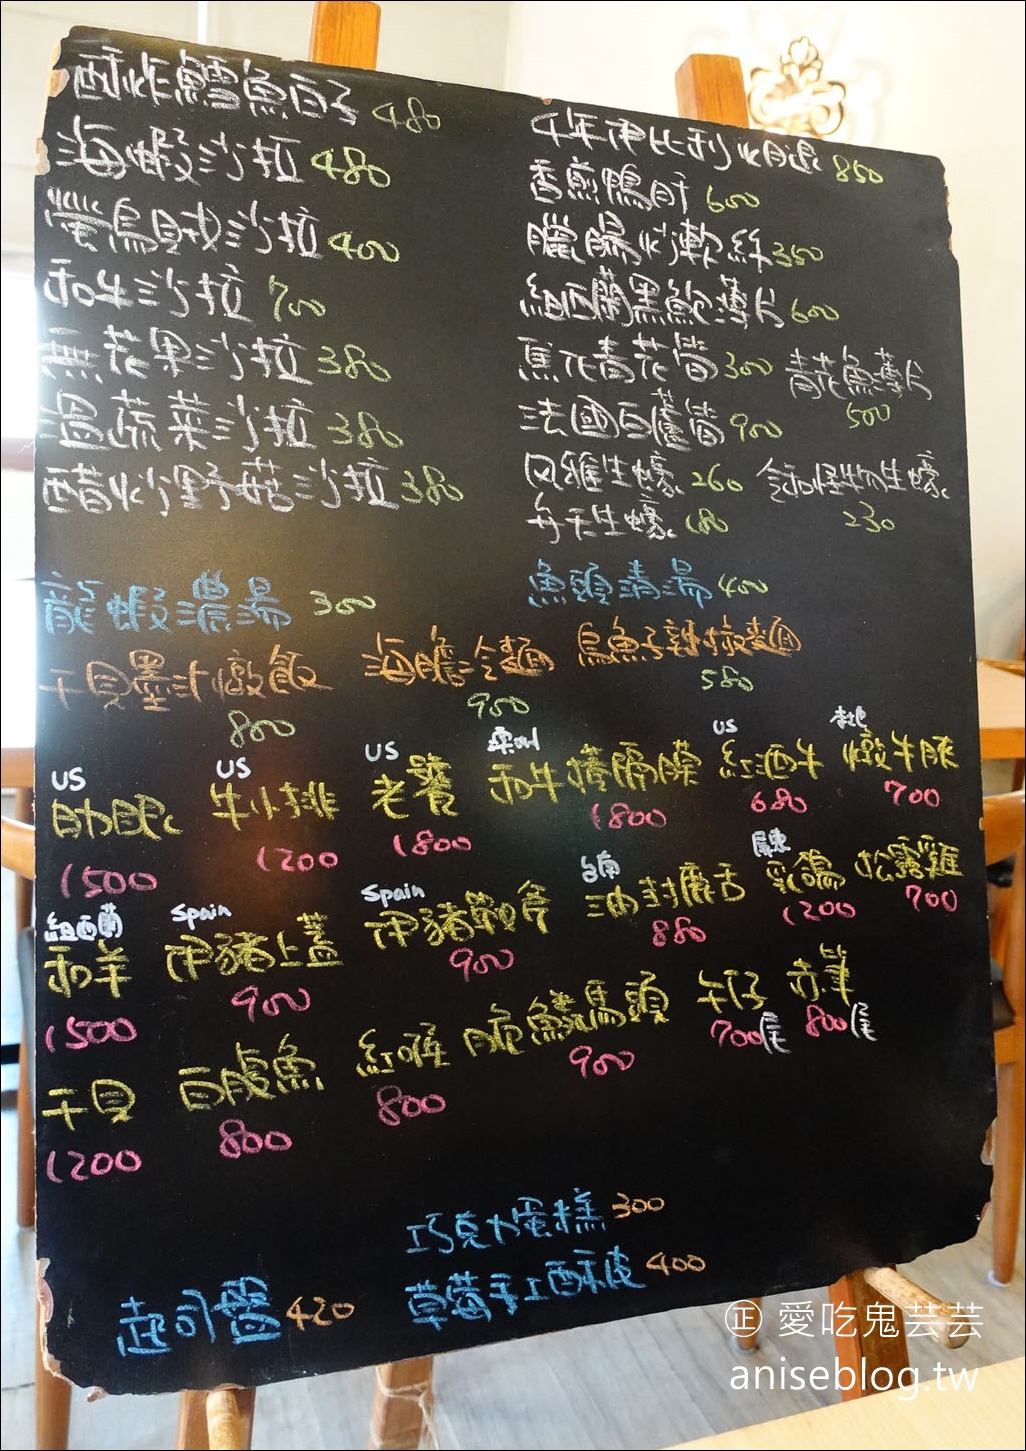 酥炸鱈魚白子 480
海蝦沙拉 480
螢烏賊沙拉 400
和牛沙拉 700
無花果沙拉 380
溫蔬菜沙拉 380
醋炒野菇沙拉 380
4年伊比利火腿 850
香煎鴨肝 600
臘腸炒軟絲 350
紐西蘭黑鮑薄片 600
焦化青花筍 300
青花魚薄片
500
法國白蘆筍 900
风雅生蠔 260
令和怪物生蠔
230
弁天生蠔 180
龍蝦濃湯 300
魚頭清湯 400
干貝墨汁燉飯
800
海膽冷麵
900
烏魚子辣椒麵
580
US
肋眼
1500
US
牛小排
1200
US
老饕
1800
澳洲
和牛横隔膜
1800
US
紅酒牛
680
燉牛腱
700
紐西蘭
和羊
1500
Spain
伊豬上蓋
900
Spain
伊豬戰斧
900
台南
油封鹿舌
880
屏東
乳鴿
1200
松露雞
700
干貝
1200
白鱸魚
800
紅喉
800
脆鱗馬頭
900
午仔
700尾
赤筆
800尾
巧克力蛋糕 300
草莓手工酥皮 400
起司盤 420
正 愛吃鬼芸芸
aniseblog.tw